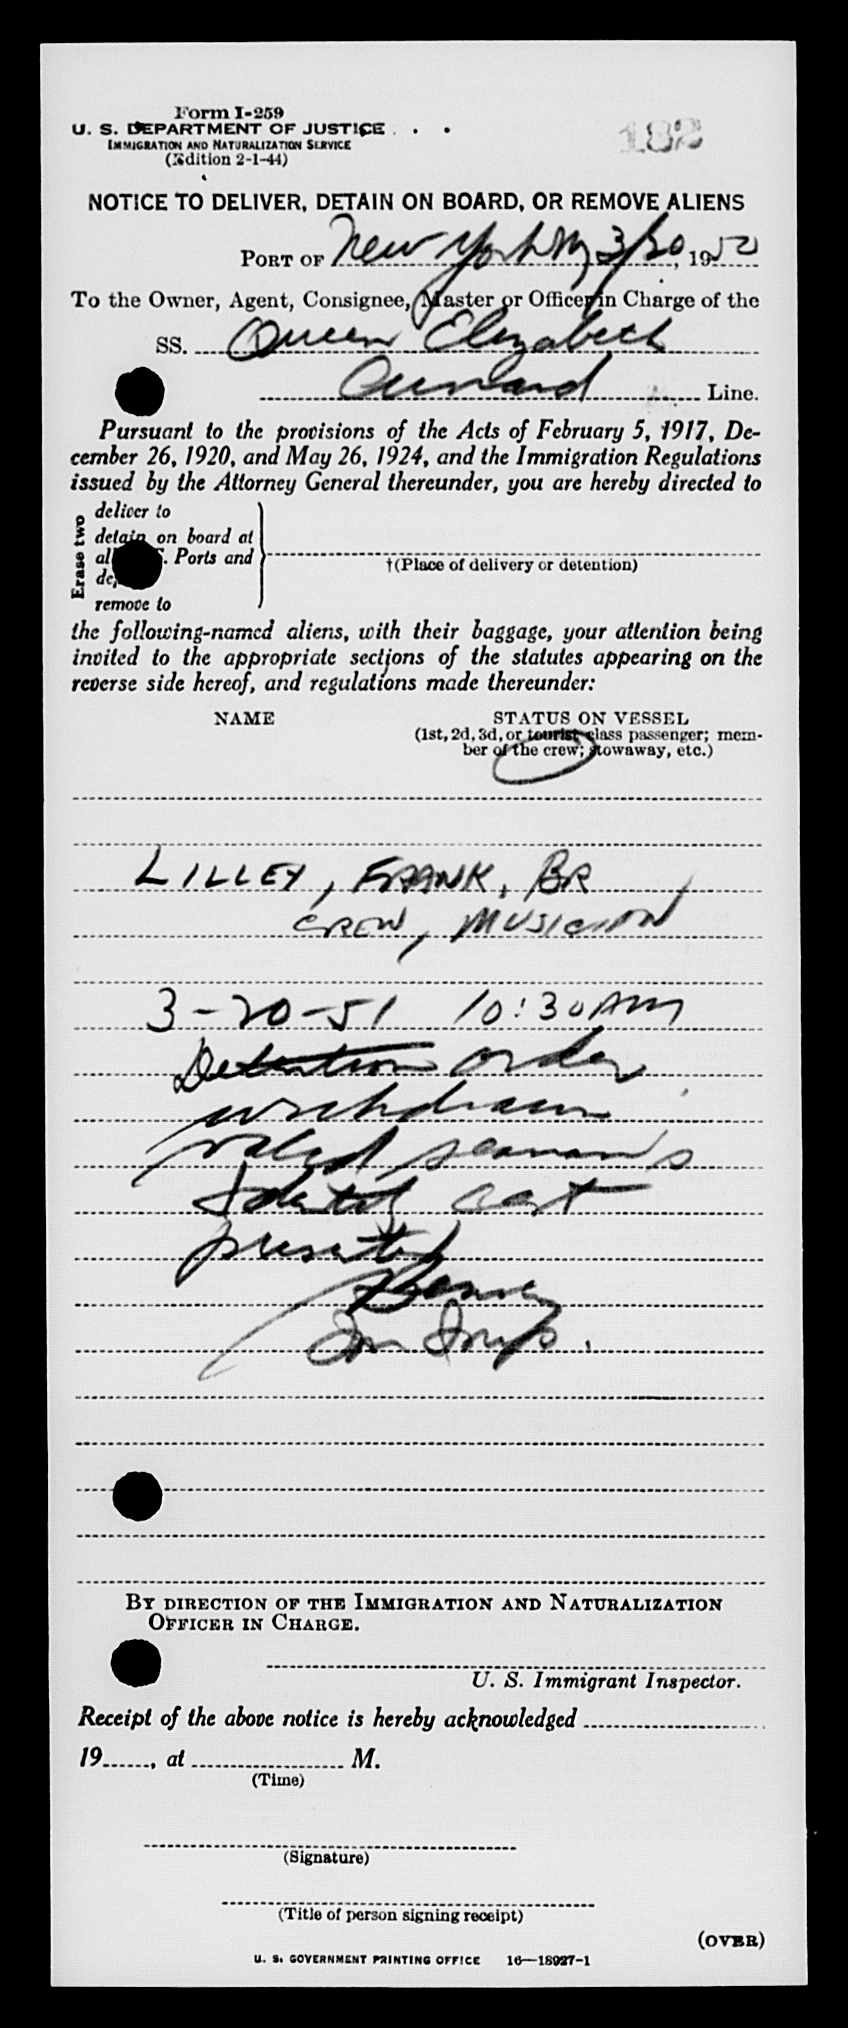 Form I-259
U. S. DEPARTMENT OF JUSTICE
IMMIGRATION AND NATURALIZATION SERVICE
(Edition 2-1-44)
182
NOTICE TO DELIVER, DETAIN ON BOARD, OR REMOVE ALIENS
PORT OF New York NY 3/20, 1950
To the Owner, Agent, Consignee, Master or Officer in Charge of the
SS. Queen Elizabeth
Cunard Line.
Pursuant to the provisions of the Acts of February 5, 1917, De-
cember 26, 1920, and May 26, 1924, and the Immigration Regulations
issued by the Attorney General thereunder, you are hereby directed to
Erase two
deliver to
detain on board at
Ports and
remove to
†(Place of delivery or detention)
the following-named aliens, with their baggage, your attention being
invited to the appropriate sections of the statutes appearing on the
reverse side hereof, and regulations made thereunder:
NAME STATUS ON VESSEL
(1st, 2d, 3d, or tourist class passenger; mem-
ber of the crew; stowaway, etc.)
LILLEY, FRANK, BR
CREW, MUSICIAN
3-20-51 10:30 AM
Detention order
withdrawn
valid seaman's
identity card
presented
BY DIRECTION OF THE IMMIGRATION AND NATURALIZATION
OFFICER IN CHARGE.
U. S. Immigrant Inspector.
Receipt of the above notice is hereby acknowledged
19, at M.
(Time)
(Signature)
(Title of person signing receipt)
(OVER)
U. S. GOVERNMENT PRINTING OFFICE 16—18927-1